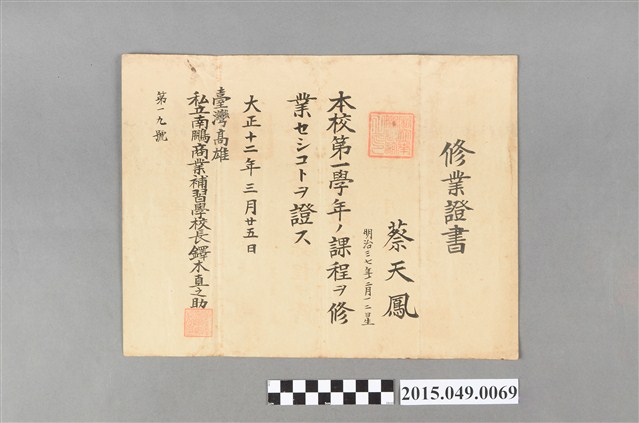 修業證書
蔡天鳳
明治三七年十二月一二日生
本校第一學年ノ課程ヲ修
業セシコトヲ證ス
大正十二年三月廿五日
臺灣高雄
私立南鵬商業補習學校長鐸木直之助
第一九號
2015.049.0069